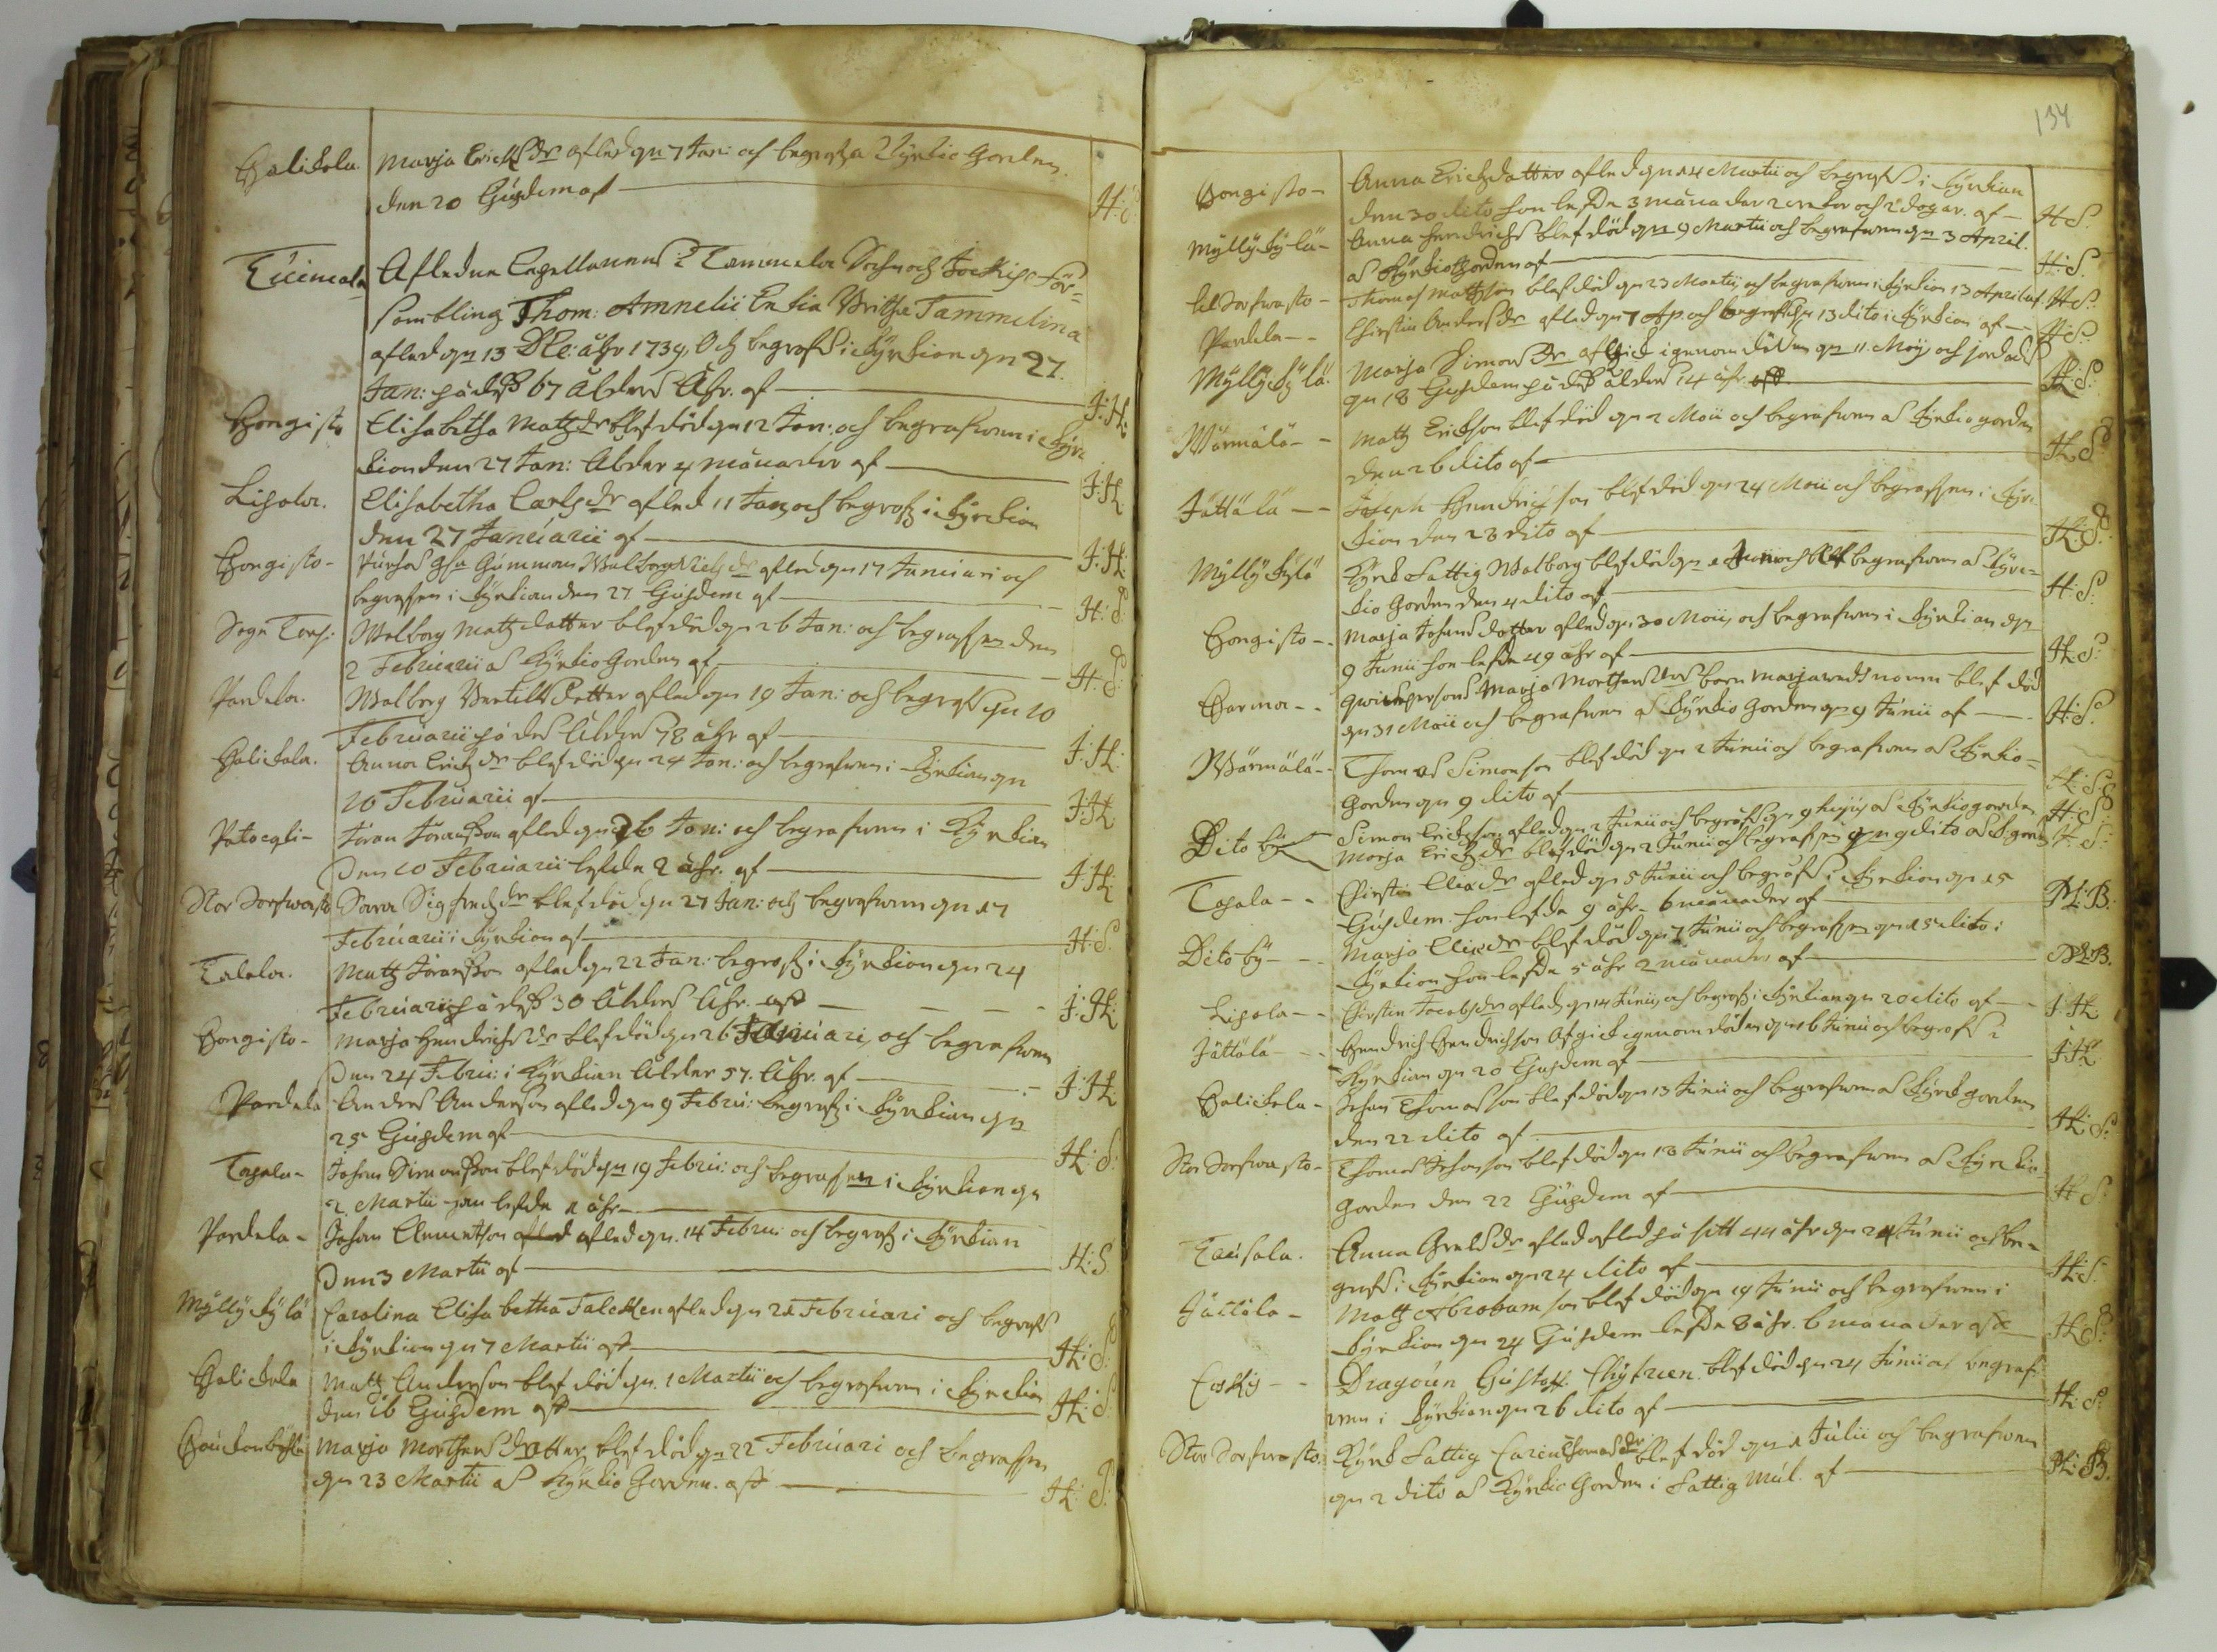 Halickela. Marja Erichsdr afled den 7 Jan: och begrofz a Kyrkio Gorden
den 20 Ejusdem af H: S:
Tuimala Afledne Capellanens i Tammela Sochn och Jockis för=
sambling Thom: Amnelii Enkia Britha Tammelina
afled den 13 Dec: åhr 1739, Och begrofs i Kyrkian den 27.
Jan: på dess 67 Ålders Åhr. af J: H:
Hongisto Elisabetha Matzdr blef död den 12 Jan: och begrafwen i Kyr
kian den 27 Jan: Ålder 4 månader af J: H:
Lisola. Elisabetha Carlsdr afled 11 Jan, och begrofz i Kyrckian
den 27 Januarii af J: H:
Hongisto - Gumman Walborg Nielsdr afled den 17 Januari och
begrafen i Kyrkian den 27 Ejusdem af H: S:
Sogn Torp: Walborg Matzdatter blef död den 26 Jan: och begrafen den
2 Februarii a Kyrkio Gorden af H: S:
Pardela. Walborg Bertills dotter afled den 19 Jan: och begrofs den 10
Februarii på des Ålders 78 åhr af J: H:
Halickala. Anna Erichsdr blef död den 24 Jan: och begrafwen i Kyrkian den
10 Februarii af J: H:
Jöran Jöransson afled den 26 Jan: och begrafwen i Kyrkian
Den 10 Februarii lefde 2 åhr. af J: H:
Stor Sorfwasto Sara Sigfredzdr blef död den 27 Jan: och begrafwen den 17
Februarii i Kyrkian af H: S:
Talela. Matz Jöransson afled den 22 Jan: begrofz i Kyrkian den 24
Februarii på dess 30 Ålders Åhr. af J: H:
Hongisto - Marja Hendrichsdr blef död den 26 Januari, och begrafwen
Den 24 Febru: i Kyrkian Ålder 57. Åhr. af J: H:
Pardela Anders Anderson afled den 9 Febru: begrofz i Kyrkian den
25 Ejusdem af H: S:
Tapala - Johan Simonsson blef död den 19 Febru: och begrafen i Kyrkian den
2. Martii han lefde 1 åhr
Pardela - Johan Clemetson afled afled den 14 Febru: och begrofz i Kyrkian
Den 3 Martii af H: S
Mÿllÿ Kÿlä Carolina Elisabetha Falcken afled den 21 Februari och begrofs
i Kyrkian den 7 Martii af H: S:
Halickela Matz Anderson blef död den 1 Martii och begrafwen i Kyrckian
den 16 Ejusdem af H: S:
Marja Morthens dotter blef död den 22 Februari och begrafen
den 23 Martii a Kyrkio Gorden. af H: S:
134
Hongisto - Anna Erichsdatter afled den 14 Martii och begrofs i Kyrkian
den 30 dito hon lefde 3 månader 2 weckor och 2 dogar. af - H: S:
Mÿllÿ Kÿlä - Anna Hendrichs blef död den 9 Martii och begrafwen den 3 April.
a Kyrkio Gorden af H: S:
Lil Sorfwasto - Thomas Matzson blef död den 23 Martii, och begrafwen i Kyrkian 13 April af H: S:
Pardela - - Christin Andersdr afled den 7 Ap. och begrofs den 13 dito i Kyrkian af - H: S:
Mÿllÿ Kÿlä Marja Simonsdr afgick igenom döden den 11. Maij och jordades
den 18 Ejusdem på dess ålders 14 åhr af H: S:
Wärmälä - - Matz Erichson blef död den 2 Maii och begrafwen a Kyrkio gorden
den 26 dito af H: S:
Jättälä - - Joseph Hendrichson blef död den 24 Maii och begrafen i Kyr
kian den 28 dito af H: S:
Mÿllÿ Kÿlä Kyrk Fattig Walborg blef död den 1 Junii och blef begrafwen a Kyr=
kio Gorden den 4 dito af H: S:
Hongisto - Marja Johans dotter afled den 30 Maii, och begrafwen i Kyrkian den
9 Junii hon lefde 49 åhr af H: S:
Harma - - Marja Morthens barn Marja wed nomen blef död
den 31 Maii och begrafwen a Kyrkio Gorden den 9 Junii af H: S:
Wärmälä - - Thomas Simonson blef död den 2 Junii och begrafwen a Kyrkio=
gorden den 9 dito af H: S:
Dito by Simon Erichson afled den 2 Junii och begrofs den 9 hujus a Kyrkiogorden H: S:
Marja Erichsdr blef död den 2 Junii och begrafen den 9 dito a K:gorden H: S:
Tapala - - Christin Eliaedr afled den 5 Junii och begrofs i Kyrkian den 15
Ejusdem. hon lefde 9 åhr - 6 månader af M: B:
Dito by - - Marja Eliaedr blef död den 7 Junii och begrafen den 15 dito i
Kyrkian hon lefde 5 åhr 2 månader af M: B.
Lisola - - Christin Jacobsdr afled den 14 Junii, och begrofz i Kyrkian den 20 dito af - J: H:
Jättälä - - Hendrich Hendrichson Afgick igenom döden den 16 Junii och begrofs i
Kyrkian den 20 Ejusdem af J: H:
Halickela - Johan Thomasson blef död den 13 Junii och begrafwen a Kyrck gorden
den 22 dito af H: S:
Stor Sorfwasto - Thomas Johanson blef död den 18 Junii och begrafwen a Kyrckio=
gorden den 22 Ejusdem af H: S:
Tausala. Anna Grelsdr afled afled på sitt 44 åhr den 24 Junii och be=
grofs i Kyrkian den 24 dito af H: S:
Jättäla - Matz Abrahamson blef död den 19 Junii och begrafwen i
Kyrkian den 24 Ejusdem lefde 8 åhr. 6 månader af H: S:
Dragoun Gustaff Chytreen. blef död den 24 Junii och begraf=
wen i Kyrkian den 26 dito af H: S:
Stor Sorfwasto. Kyrck Fattig Carin Thomasdr blef död den 1 Julii och begrafwen
den 2 dito a Kyrkio Gorden i Fattig Mul. af H: B.